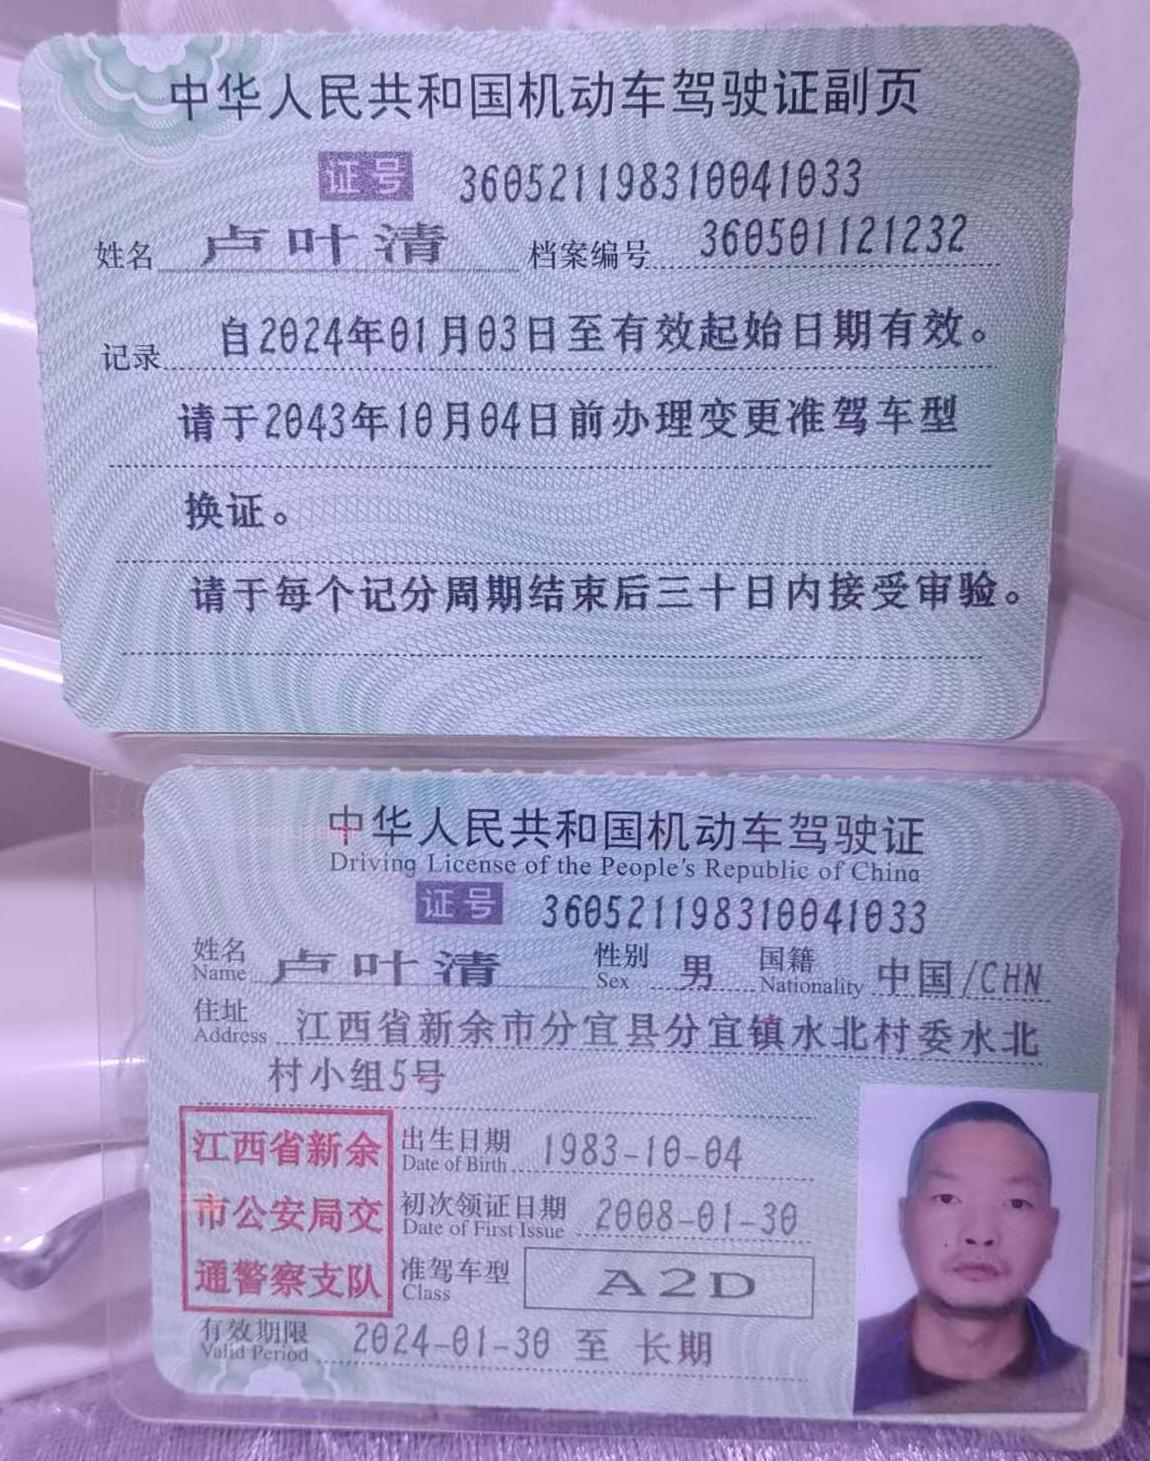 中华人民共和国机动车驾驶证副页
证号 360521198310041033
姓名 卢叶清 档案编号 360501121232
记录 自2024年01月03日至有效起始日期有效。
请于2043年10月04日前办理变更准驾车型
换证。
请于每个记分周期结束后三十日内接受审验。
中华人民共和国机动车驾驶证
Driving License of the People's Republic of China
证号 360521198310041033
姓名 卢叶清 性别 男 国籍 中国/CHN
Name Sex Nationality
住址 江西省新余市分宜县分宜镇水北村委水北
Address
村小组5号
江西省新余
市公安局交
通警察支队
出生日期 1983-10-04
Date of Birth
初次领证日期 2008-01-30
Date of First Issue
准驾车型 A2D
Class
有效期限 2024-01-30 至 长期
Valid Period